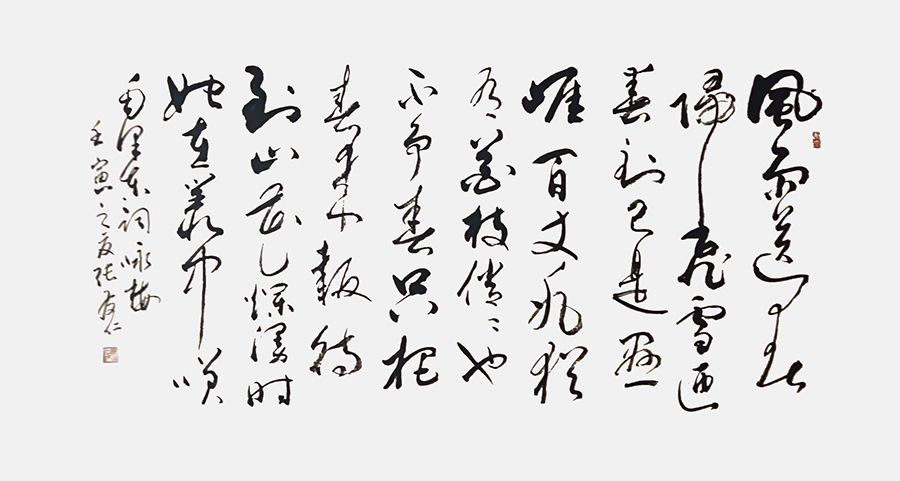 風雨送春
歸飛雪迎
春到已是懸
崖百丈冰猶
有花枝俏〻也
不争春只把
春来報待
到山花爛漫时
她在叢中咲
毛澤东詞咏梅
壬寅之夏张有仁